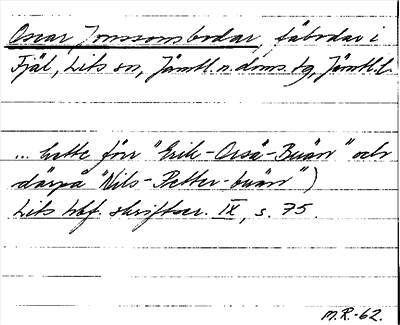 Oscar Jonssonsbodar, fäbodar i
Fjäl, Lits sn, Jämtl. n. doms. tg, Jämtl. l.
... hette förr "Erik-Orsä-Buän" och
därpå "Nils-Petter-buän")
Lits hbf. skriftser. IX, s. 75.
M.R.-62.